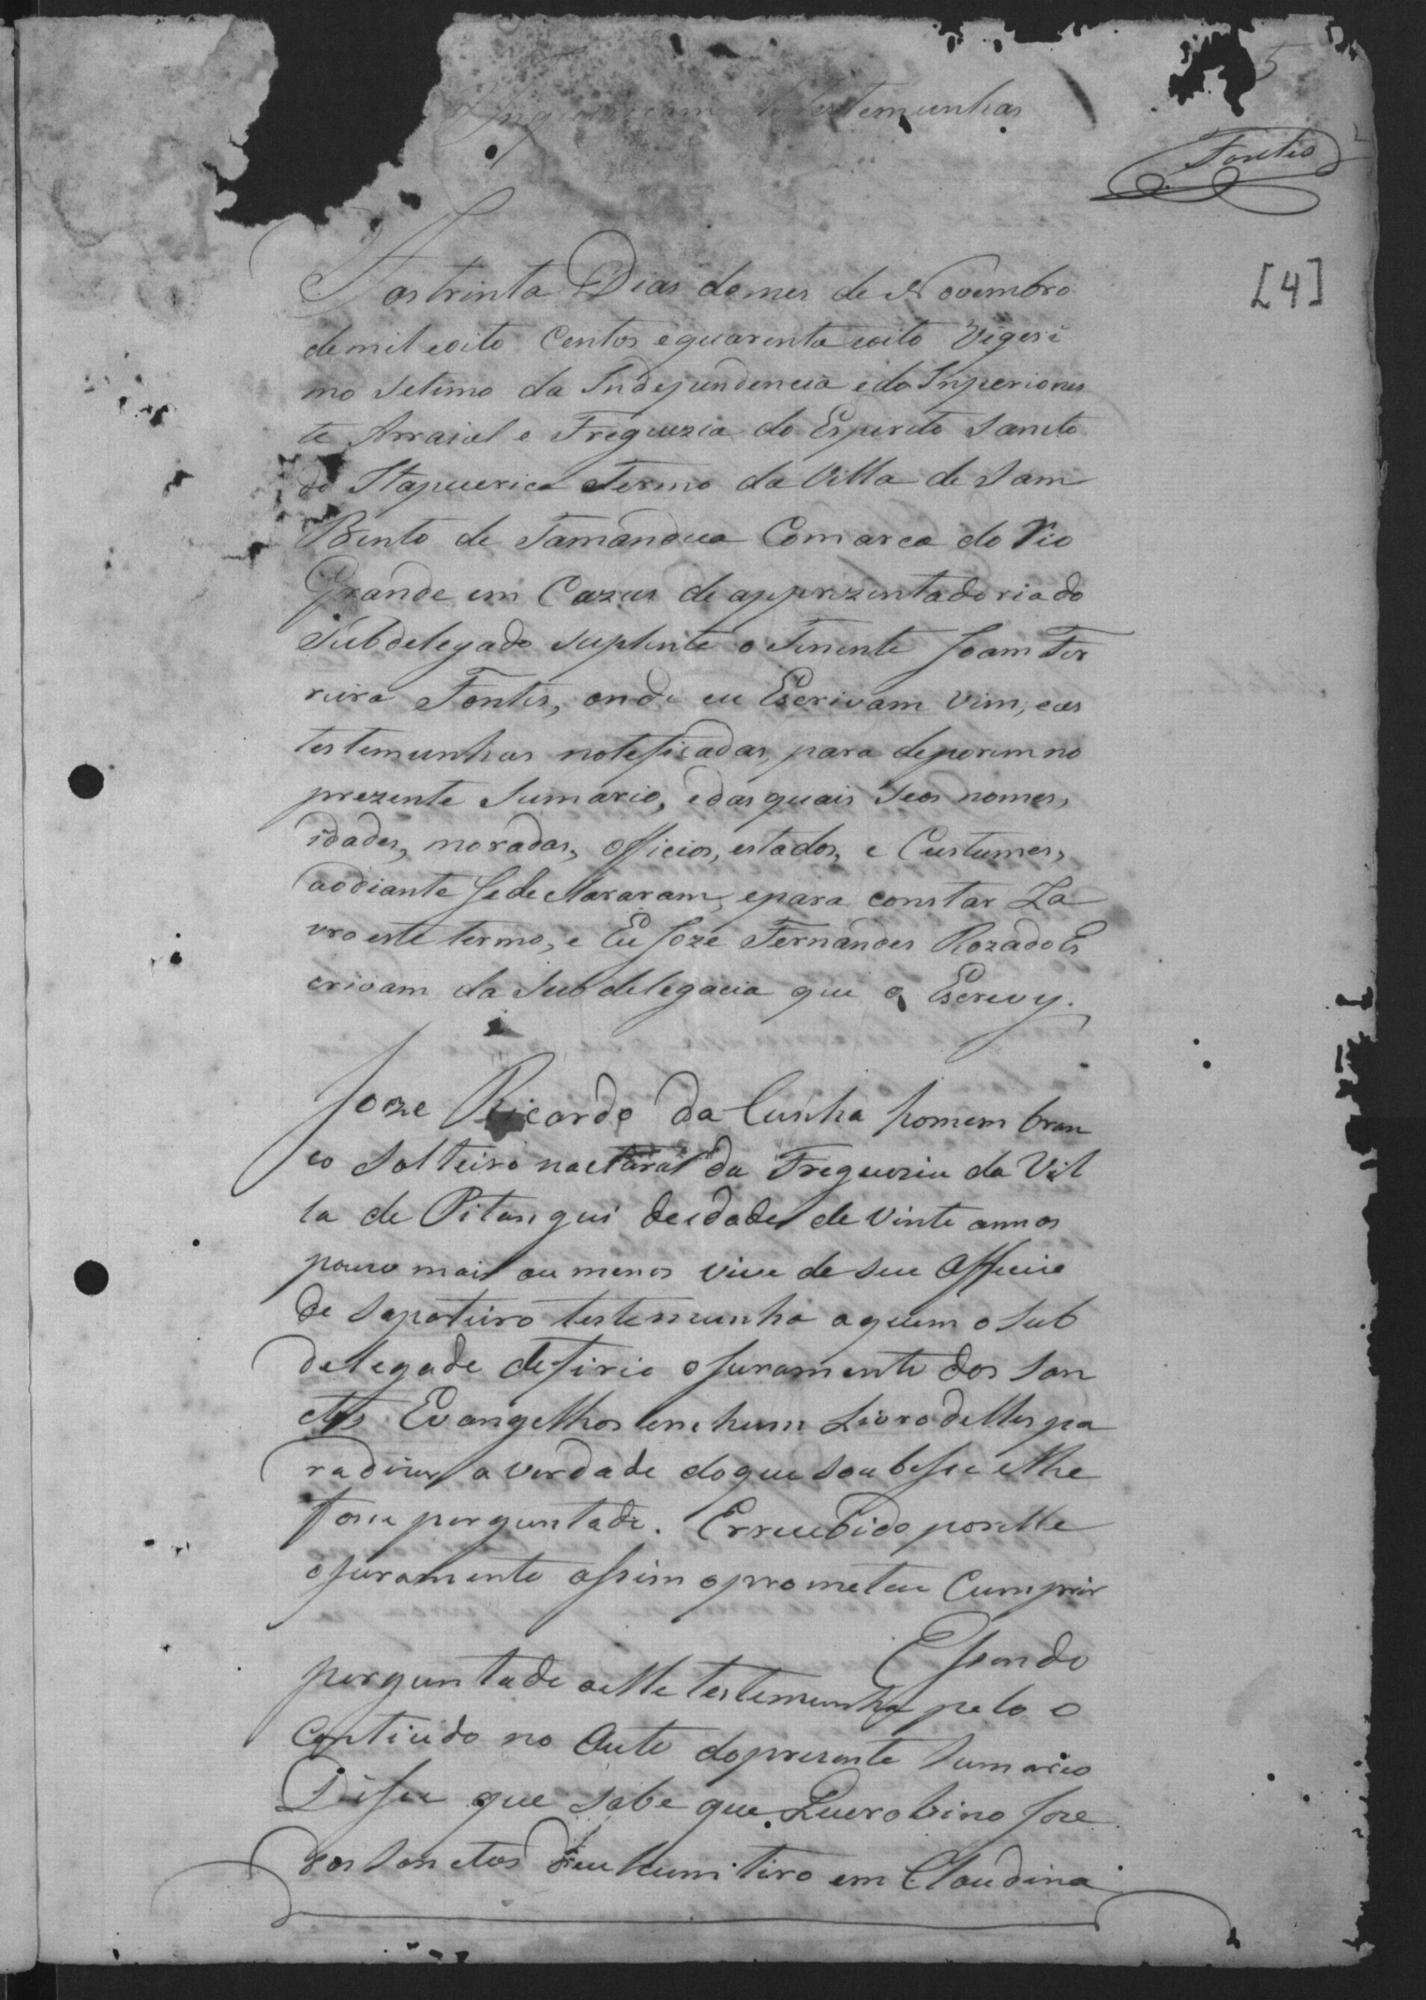 5
testemunhas
Fontes
[4]
Aos trinta Dias do mes de Novembro
de mil e oito Centos e quarenta e oito Vigesi
mo Setimo da Independencia e do Inperio nes
te Arraial e Freguezia do Esperito Sancto
de Itapuerica Termo da Villa de Sam
Bento de Tamandua Comarca do Rio
Grande em Cazas de apprezentadoria do
Subdelegado Suplente o Tenente Joam Fer
reira Fontes, onde eu Escrivam vim, e as
testemunhas noteficadas, para deporem no
prezente Sumario, e das quais Seos nomes,
idades, moradas, officios, estados, e Custumes,
ao diante Se declararam, e para constar La
vro este termo, e Eu Joze Fernandes Rozado Es
crivam da Subdelegacia que o Escrevy.
Joze Ricardo da Cunha homem bran
co Solteiro nactural da Freguezia da Vil
la de Pitangui de idade de Vinte annos
pouco mais ou menos vive de seu Officio
de Sapateiro testemunha a quem o Sub
delegado defirio o Juramento dos San
ctos Evangelhos em hum Livro delles pa
ra dizer a verdade do que Soubesse e lhe
fosse perguntado. E recebido por elle
o Juramento assim o prometeu Cumprir
E Sendo
perguntado a elle testemunha pelo o
Contiudo no Auto do prezente Sumario
Disse que Sabe que Querobino Joze
dos Sanctos deu hum tiro em Claudina